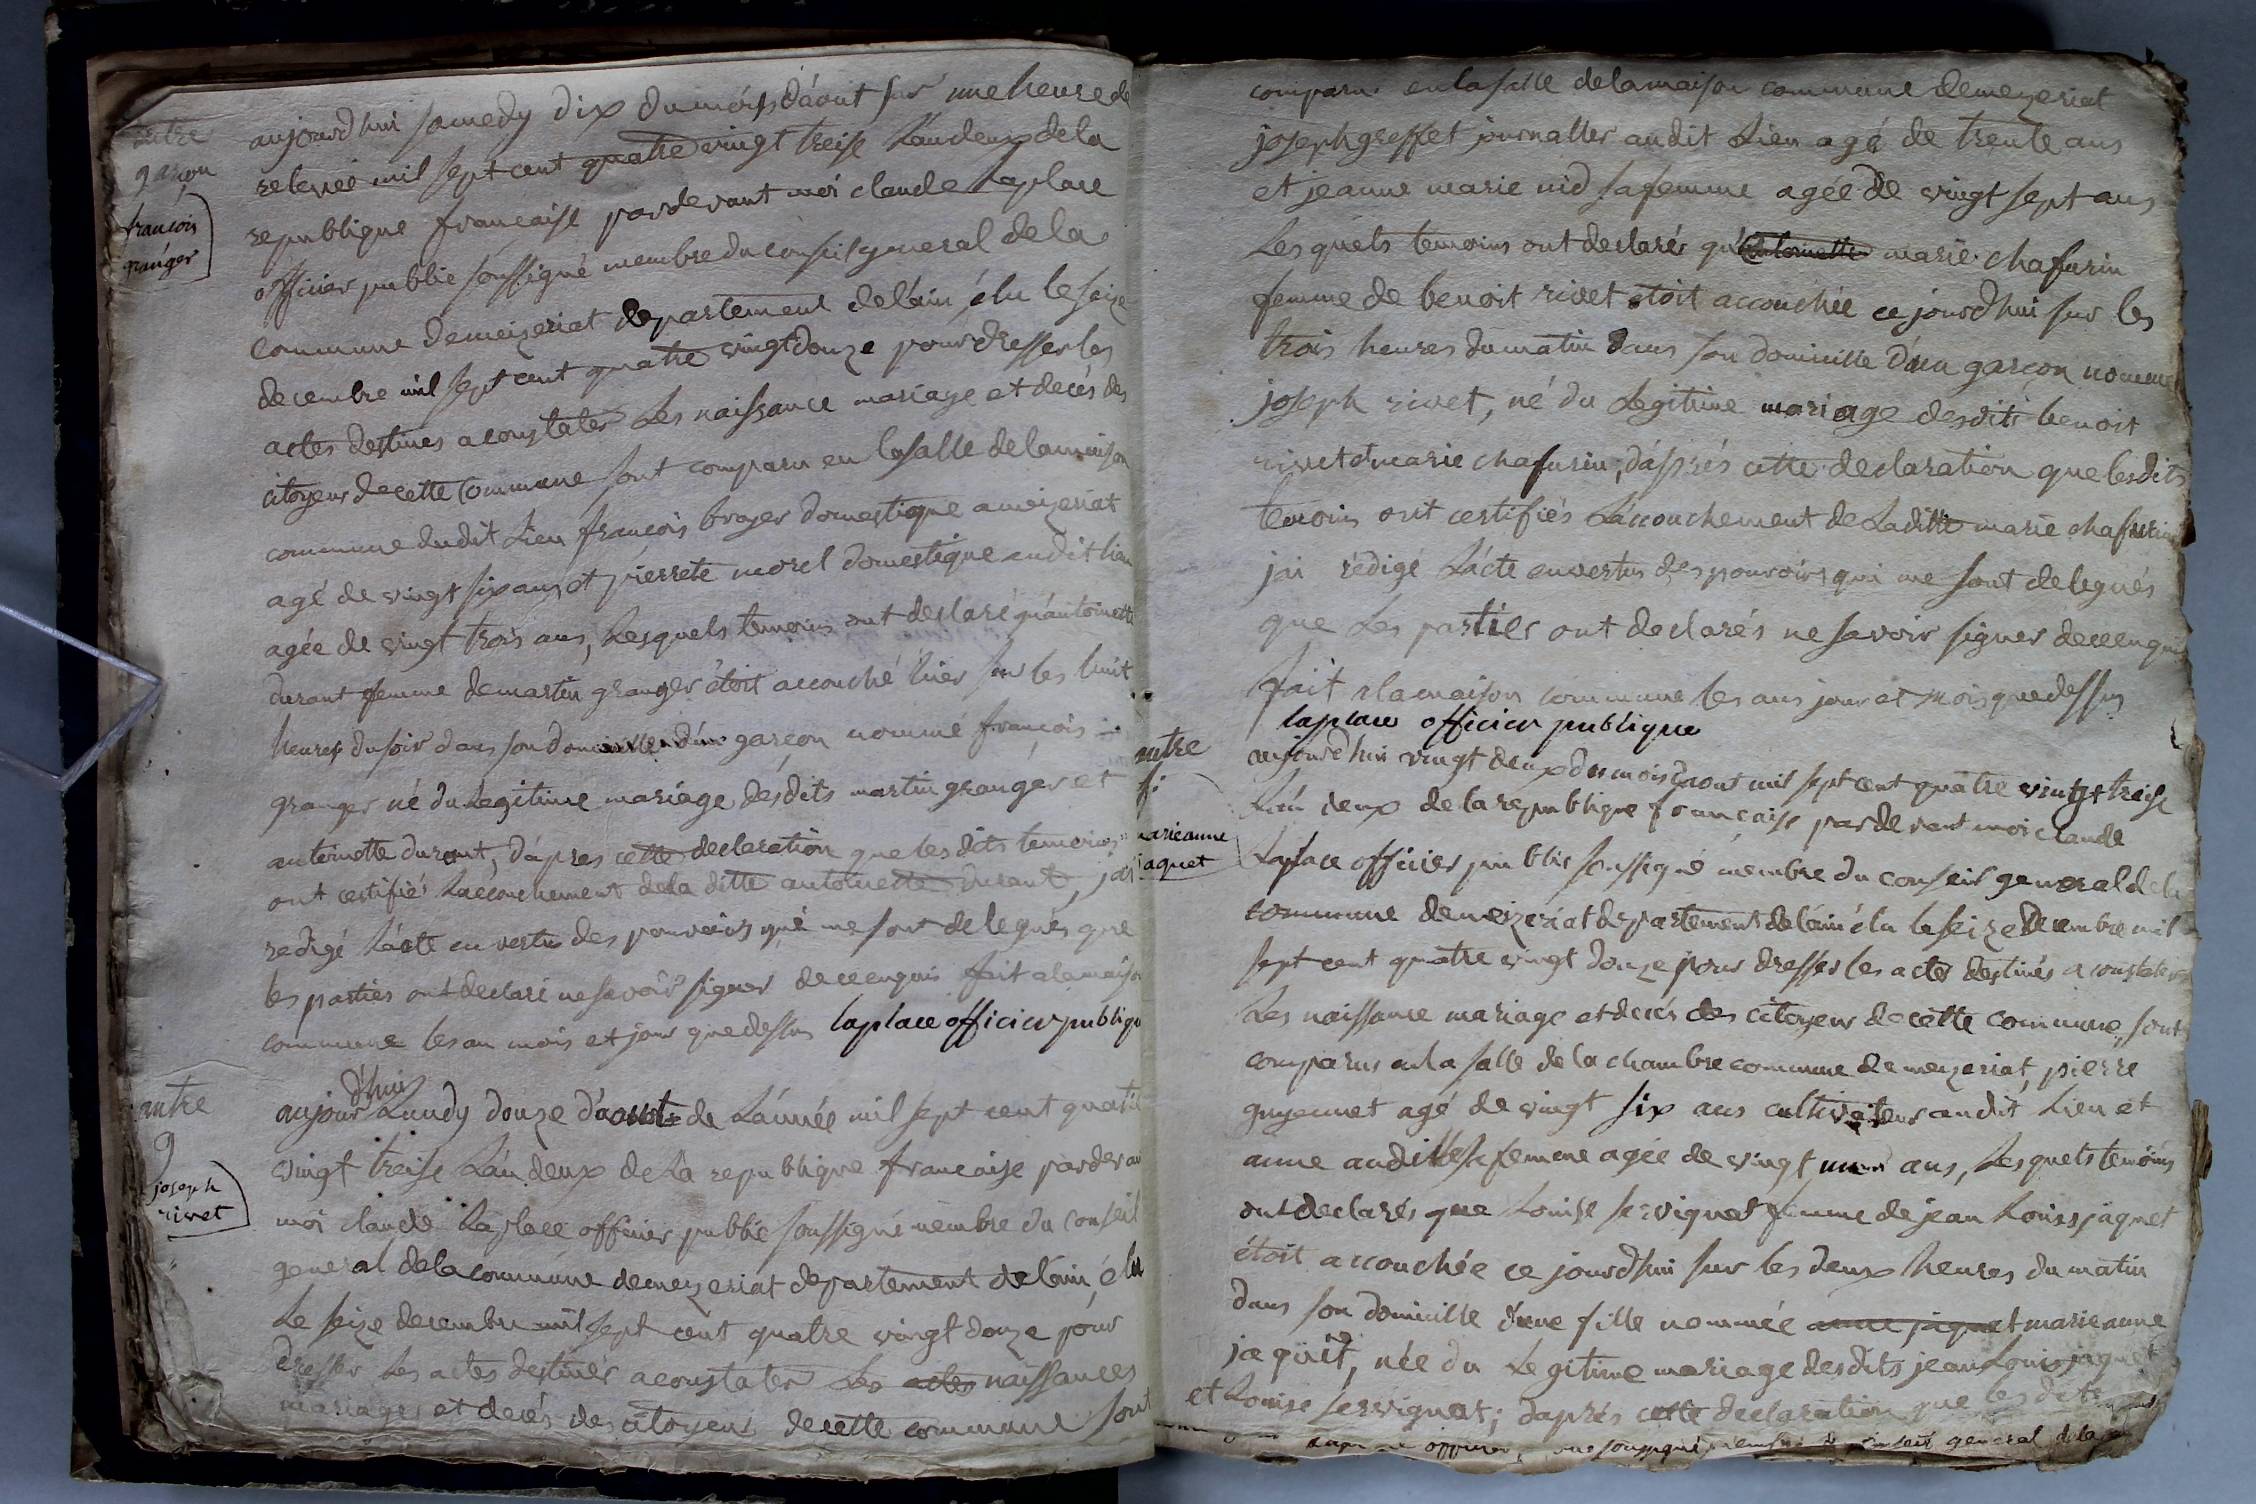 autre
garçon
francois
granger
aujourdhui samedy dix du mois d'aout sur une heure de
relevée mil sept cent quatre vingt treise L'an deux de la
republique francaise pardevant moi claude Laplace
officier public soussigné membre du conseil general de la
commune demeizeriat departement de l'ain, élu le seize
decembre mil sept cent quatre vingt douze pour dresser les
actes destines a constater Les naissance mariage et decés des
citoyens de cette commune sont comparu en la salle de la maison
commune dudit Lieu françois broyer domestique a meizeriat
agé de vingt six ans et pierrete morel domestique audit lieu
agée de vingt trois ans, Lesquels temoins ont declaré qu'antoinette
durant femme de martin granger étoit accouché hier sur les huit
heures du soir dans son domicille d'un garçon nommé françois
granger né du Legitime mariage desdits martin granger et
antoinette durant, d'apres cette declaration que lesdits temoins
ont certifiés L'accouchement de la ditte antoinette durant, j'ai
redigé L'acte en vertu des pouvoirs qui me sont delegués que
les parties ont declaré ne savoir signer de ce enquis fait a la maison
commune les an mois et jour que dessus laplace officier publique
autre
g
joseph
rivet
aujourd'hui Lundy douze d'aout de L'année mil sept cent quatre
vingt treise L'an deux de La republique francaise pardevant
moi claude Laplace officier public soussigné membre du conseil
general de la commune de mezeriat departement de l'ain, élu
Le seize decembre mil sept cent quatre vingt douze pour
dresser Les actes destinés a constater Les actes naissances
mariages et decés des citoyens de cette commune sont
comparu en la salle de la maison commune demezeriat
joseph greffet journallier audit Lieu agé de trente ans
et jeanne marie nid sa femme agée de vingt sept ans
Lesquels temoins ont declarés qu'antoinette marie chafurin
femme de benoit rivet étoit accouchée ce jourd'hui sur les
trois heures du matin dans son domicille d'un garçon nommé
joseph rivet, né du Legitime mariage desdits benoit
rivet et marie chafurin, d'après cette declaration que lesdits
temoins ont certifiés L'accouchement de Laditte marie chafurin
jai rédigé L'acte en vertus des pouvoirs qui me sont delegués
que Les parties ont declarés ne savoir signer de ce enquis
fait a la maison commune les ans jour et mois que dessus
laplace officier publique
autre
fi
marieanne
jaquet
aujourd'hui vingt deux du mois d'aout mil sept cent quatre vingt treise
L'an deux de la republique francaise pardevant moi claude
Laplace officier public soussigné membre du conseil general de la
commune demeizeriat departement de l'ain élu le seize Decembre mil
sept cent quatre vingt douze pour dresser les actes destinés a constater
Les naissance mariage et decés des citoyens de cette commune, sont
comparus en la salle de la chambre commune de mezeriat, pierre
guyennet agé de vingt six ans cultivateur audit Lieu et
anne audille sa femme agée de vingt ans, Lesquels temoins
ont declarés que Louise servignat femme de jean Louis jaquet
étoit accouchée ce jourd'hui sur les deux heures du matin
dans son domicille d'une fille nommée anne jaquet marieanne
jaquet, née du Legitime mariage desdits jean Louis jaquet
et Louise servignat; d'après cette declaration que les dits
officier soussigné membre conseil general de la